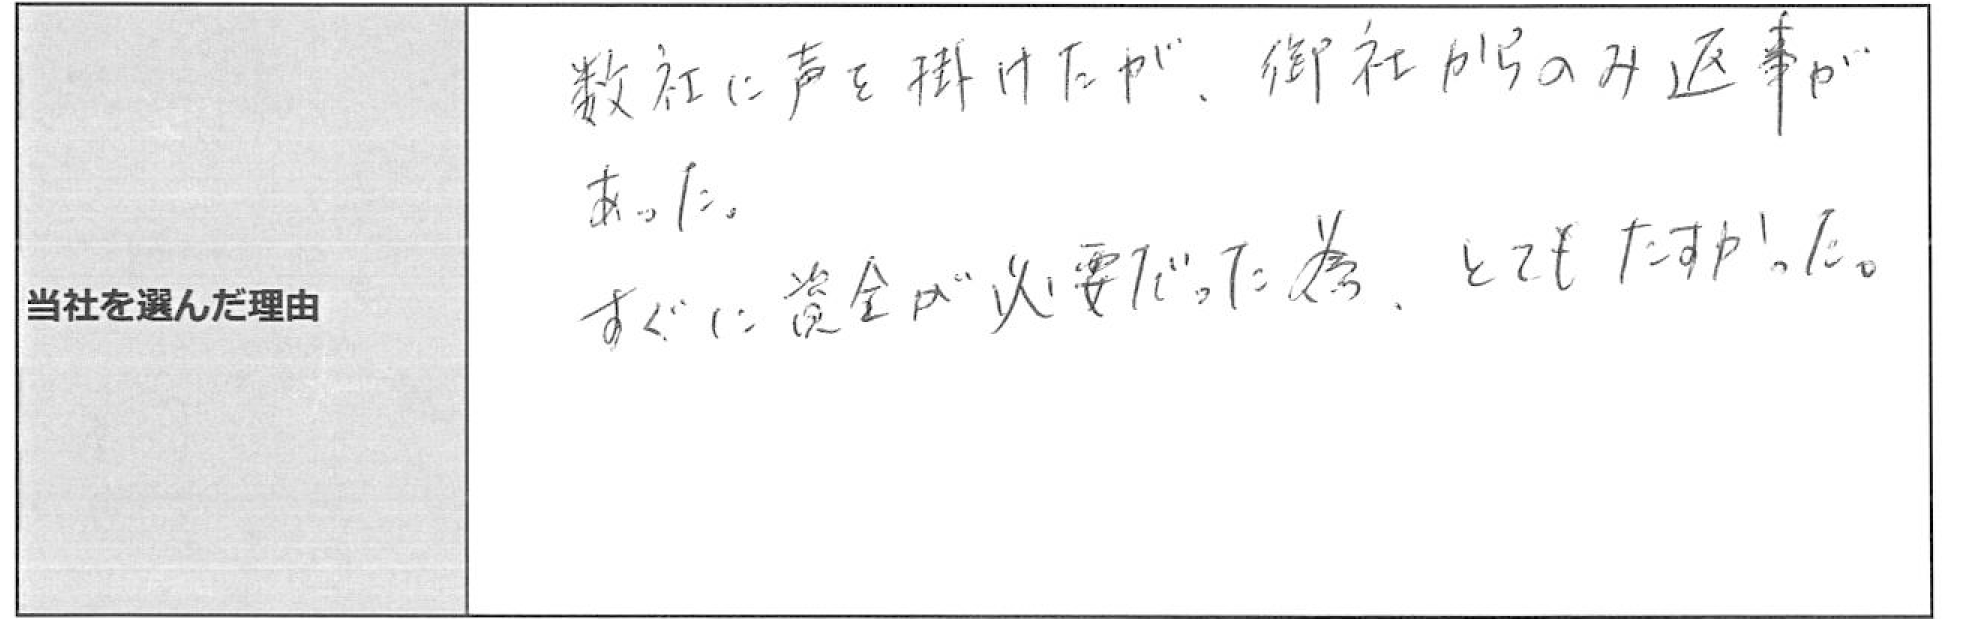 当社を選んだ理由
数社に声を掛けたが、御社からのみ返事が
あった。
すぐに資金が必要だった為、とてもたすかった。